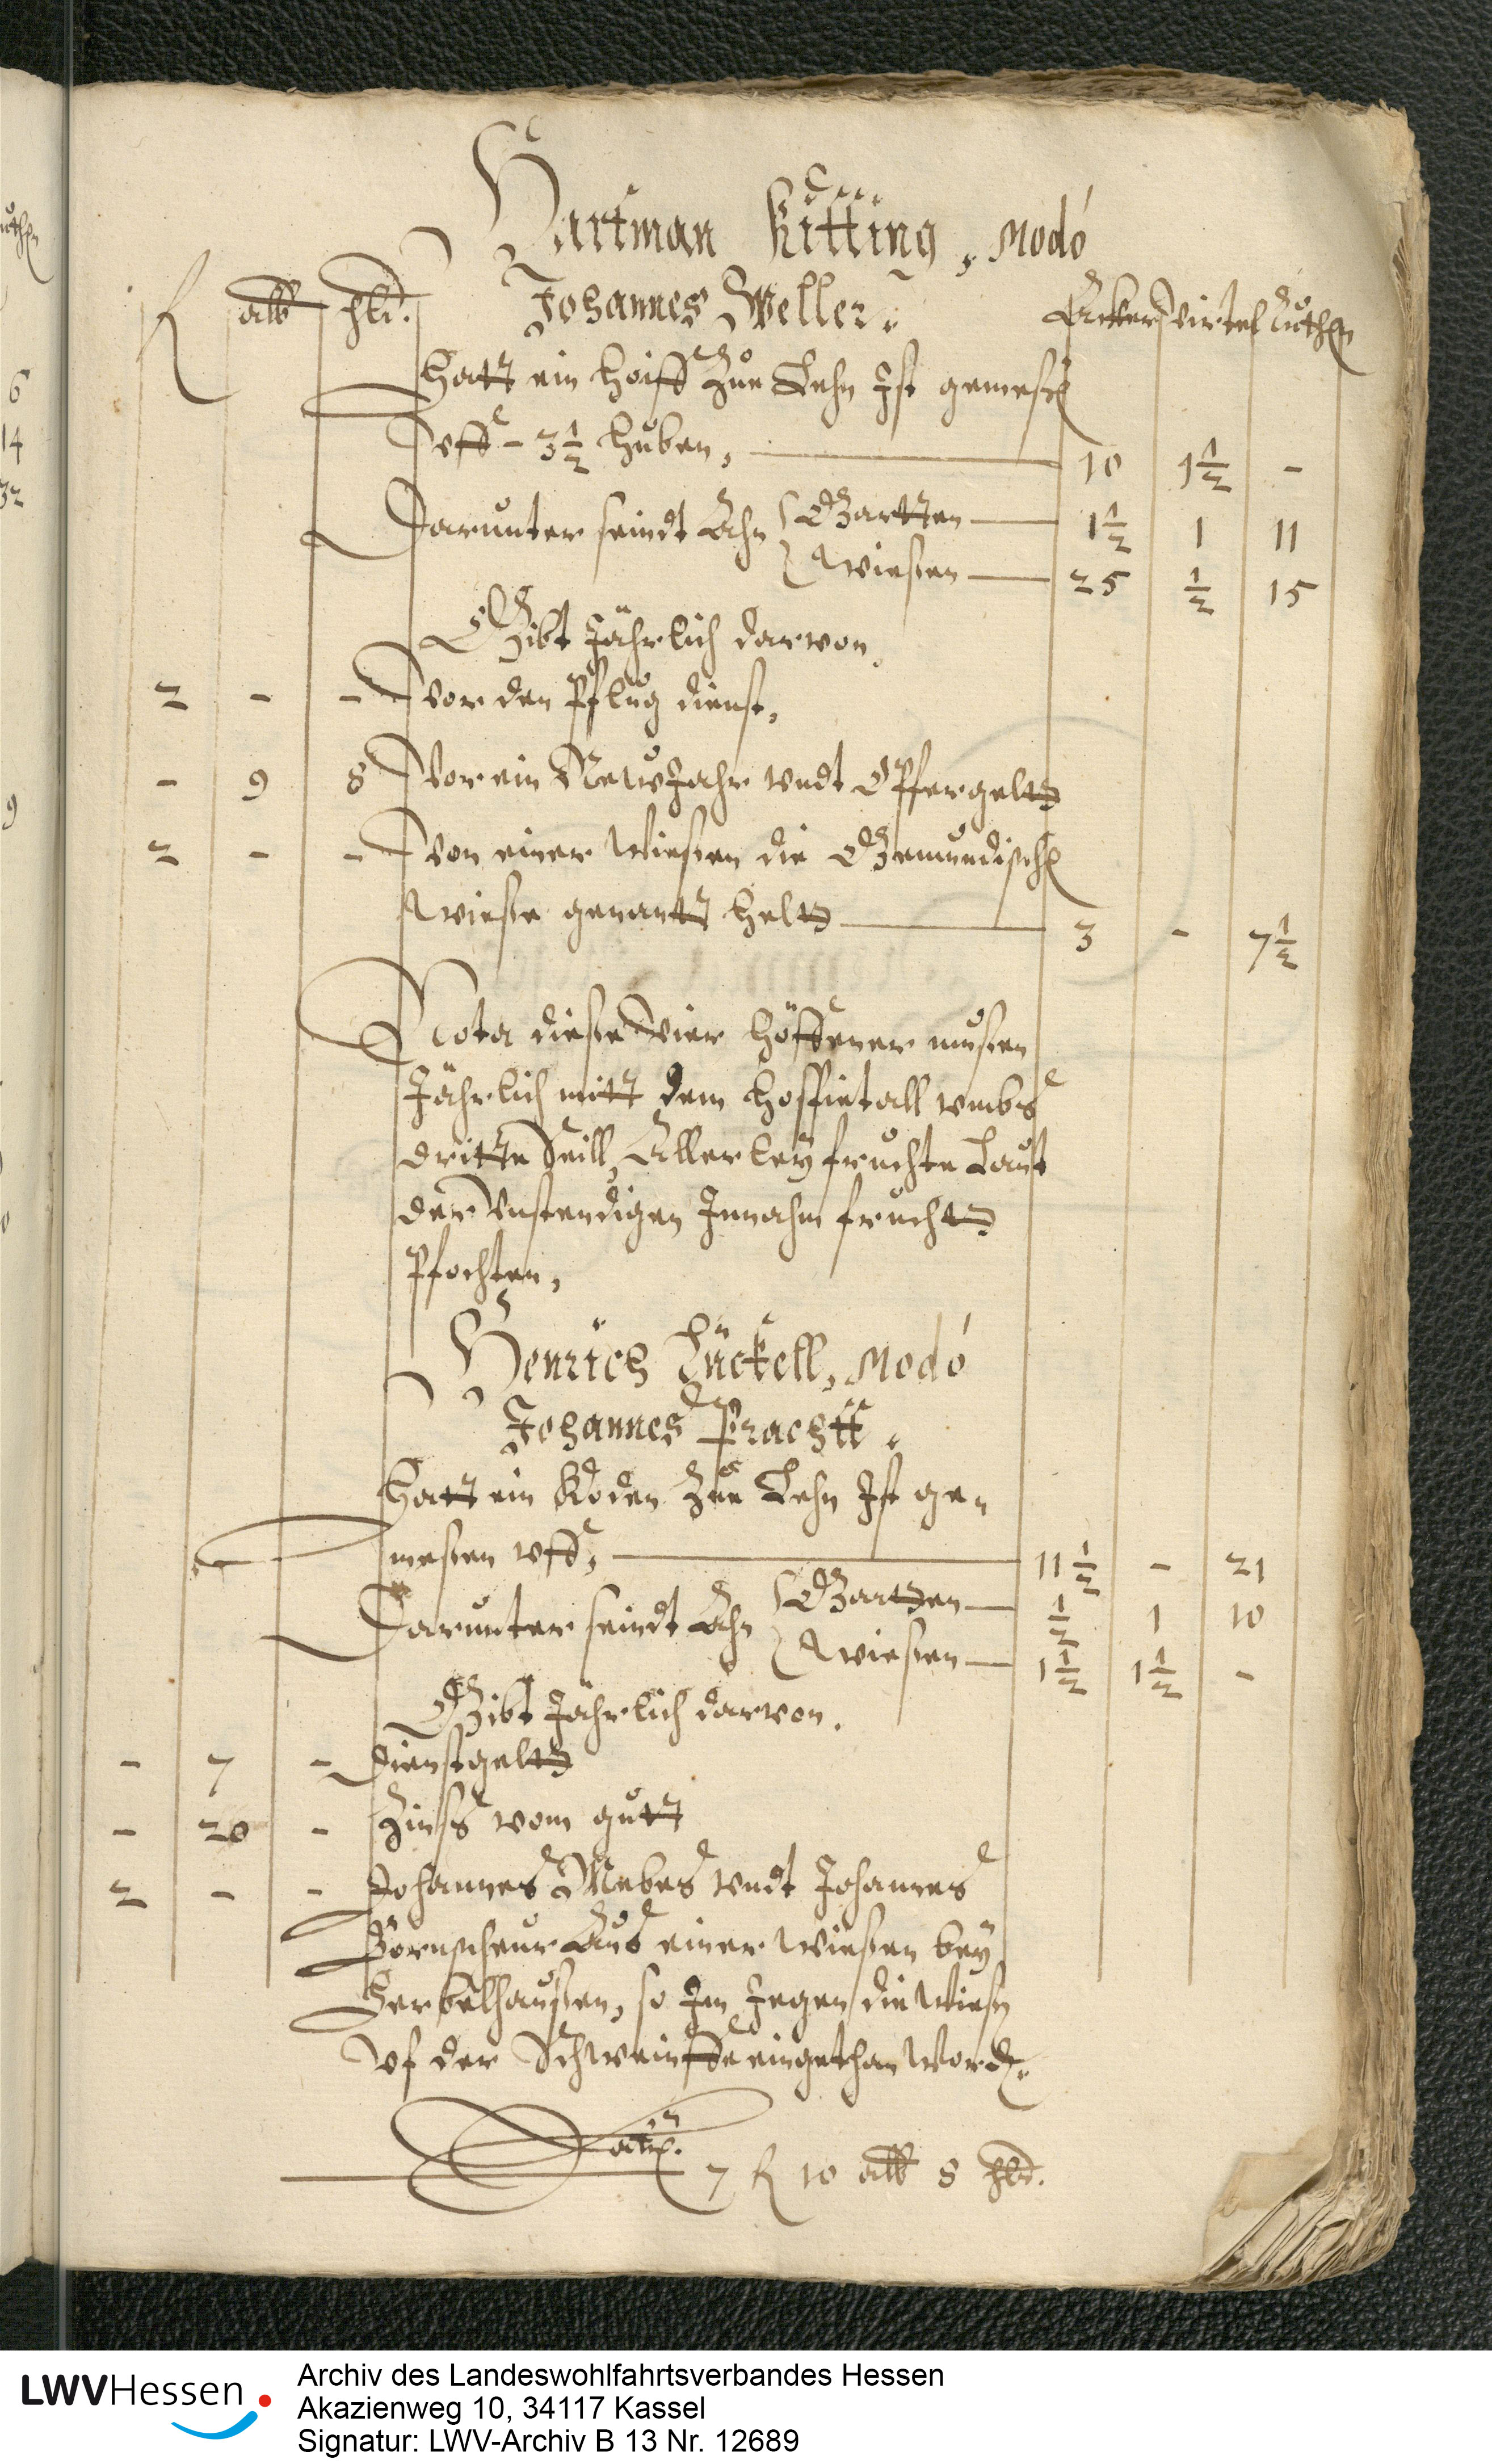 Hartman Kitting, modó
Johannes Weller.
fl alb hlr. Äcker Virtel Ruthen
Hatt ein Hoiff zue Lehn Ist gemeßen
Uff - 3 1/2 Huben, 10 1 1/2 -
Darunter seindt Ahn Gartten 1 1/2 1 11
Wießen 25 1/2 15
Gibt Jährlich darvon,
2 - - Vor den Pflug dienst,
- 9 8 Vor ein NewJahr vndt Opffergeltt
2 - - Von einer Wießen die Gemundische
Wieße genantt heltt 3 - 7 1/2
Nota dieße Vier Höffener mußen
Jährlich mitt dem Hospietall vmbs
dritte Teill, Allerley fruchte Laut
der Vnstendigen Innahm frucht
Pfochten,
Henrich Lückell, modó
Johannes Prachtt.
Hatt ein Koden zue Lehn Ist ge-
meßen vff, 11 1/2 - 21
Darunter seindt Ahn Gartten 1/2 1 10
Wießen 1 1/2 1 1/2 -
Gibt Jährlich darvon.
- 7 - Dienstgeltt
- 20 - Zinß vom gutt
2 - - Johannes Mebes vndt Johannes
Bornscheur Aus einer Wießen bey
Herbelhaußen, so Im Jegen die Wießen
Vf der Schweinsse eingethan Worden.
Latus. 7 fl 10 alb 8 hlr.
LWVHessen
Archiv des Landeswohlfahrtsverbandes Hessen
Akazienweg 10, 34117 Kassel
Signatur: LWV-Archiv B 13 Nr. 12689